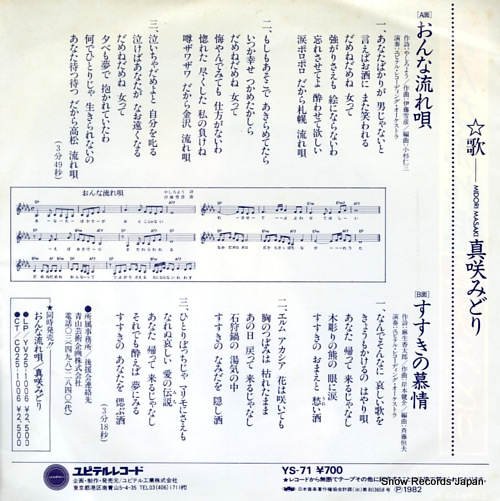 ☆歌――真咲みどり
MIDORI MASAKI
[A面]
おんな流れ唄
作詩/やしろよう・作曲/伊藤雪彦・編曲/小杉仁三
演奏/ユピテル・レコーディング・オーケストラ
一、あなたばかりが 男じゃないと
言えばお酒に また笑われる
強がりさえも 絵にならないわ
忘れさせてよ 酔わせて欲しい
だめねだめね 女って
涙ポロポロ だから札幌 流れ唄
二、もしもあそこで あきらめてたら
いつか幸せ つかめたかしら
だめねだめね 女って
悔やんでみても 仕方がないわ
惚れた 尽くした 私の負けね
噂ザワザワ だから金沢 流れ唄
三、泣いちゃだめよと 自分を叱る
泣けばあなたが なお遠くなる
だめねだめね 女って
夕べも夢で 抱かれていたわ
何でひとりじゃ 生きられないの
あなた待つ待つ だから高松 流れ唄
(3分49秒)
おんな流れ唄
やしろよう 詩
伊藤雪彦 曲
[B面]
すすきの慕情
作詩/麻生香太郎・作曲/岸本健介・編曲/斉藤恒夫
演奏/ユピテル・レコーディング・オーケストラ
一、なんでそんなに 哀しい歌を
きょうもかけるの はやり唄
あなた 帰って 来るじゃなし
木彫りの熊の 眼に涙
すすきの おまえも 愁い酒
二、エルム アカシア 花は咲いても
胸のつぼみは 枯れたまま
あの日 戻って 来るじゃなし
石狩鍋の 湯気の中
すすきの なみだを 隠し酒
三、ひとりぼっちじゃ マリモにさえも
なれぬ哀しい 愛の伝説
あなた 帰って 来るじゃなし
それでも酔えば 夢にみる
すすきの あなたを 偲ぶ酒
(3分18秒)
●所属事務所/後援会連絡先
青山芸術企画株式会社
電話〇三(四九八)二八四〇(代)
★同時発売☆
おんな流れ唄/真咲みどり
●LP/YV25-1006 ¥2,500
●CT/CO25-1006 ¥2,500
ユピテルレコード
企画・制作・発売元/ユピテル工業株式会社
東京都港区南青山5-4-35 TEL.03(406)1711(代)
YS-71 ¥700
★レコードから無断でテープその他に
日本音楽著作権協会
Ⓟ1982
Show Records Japan
©snowrecordsjapan.com